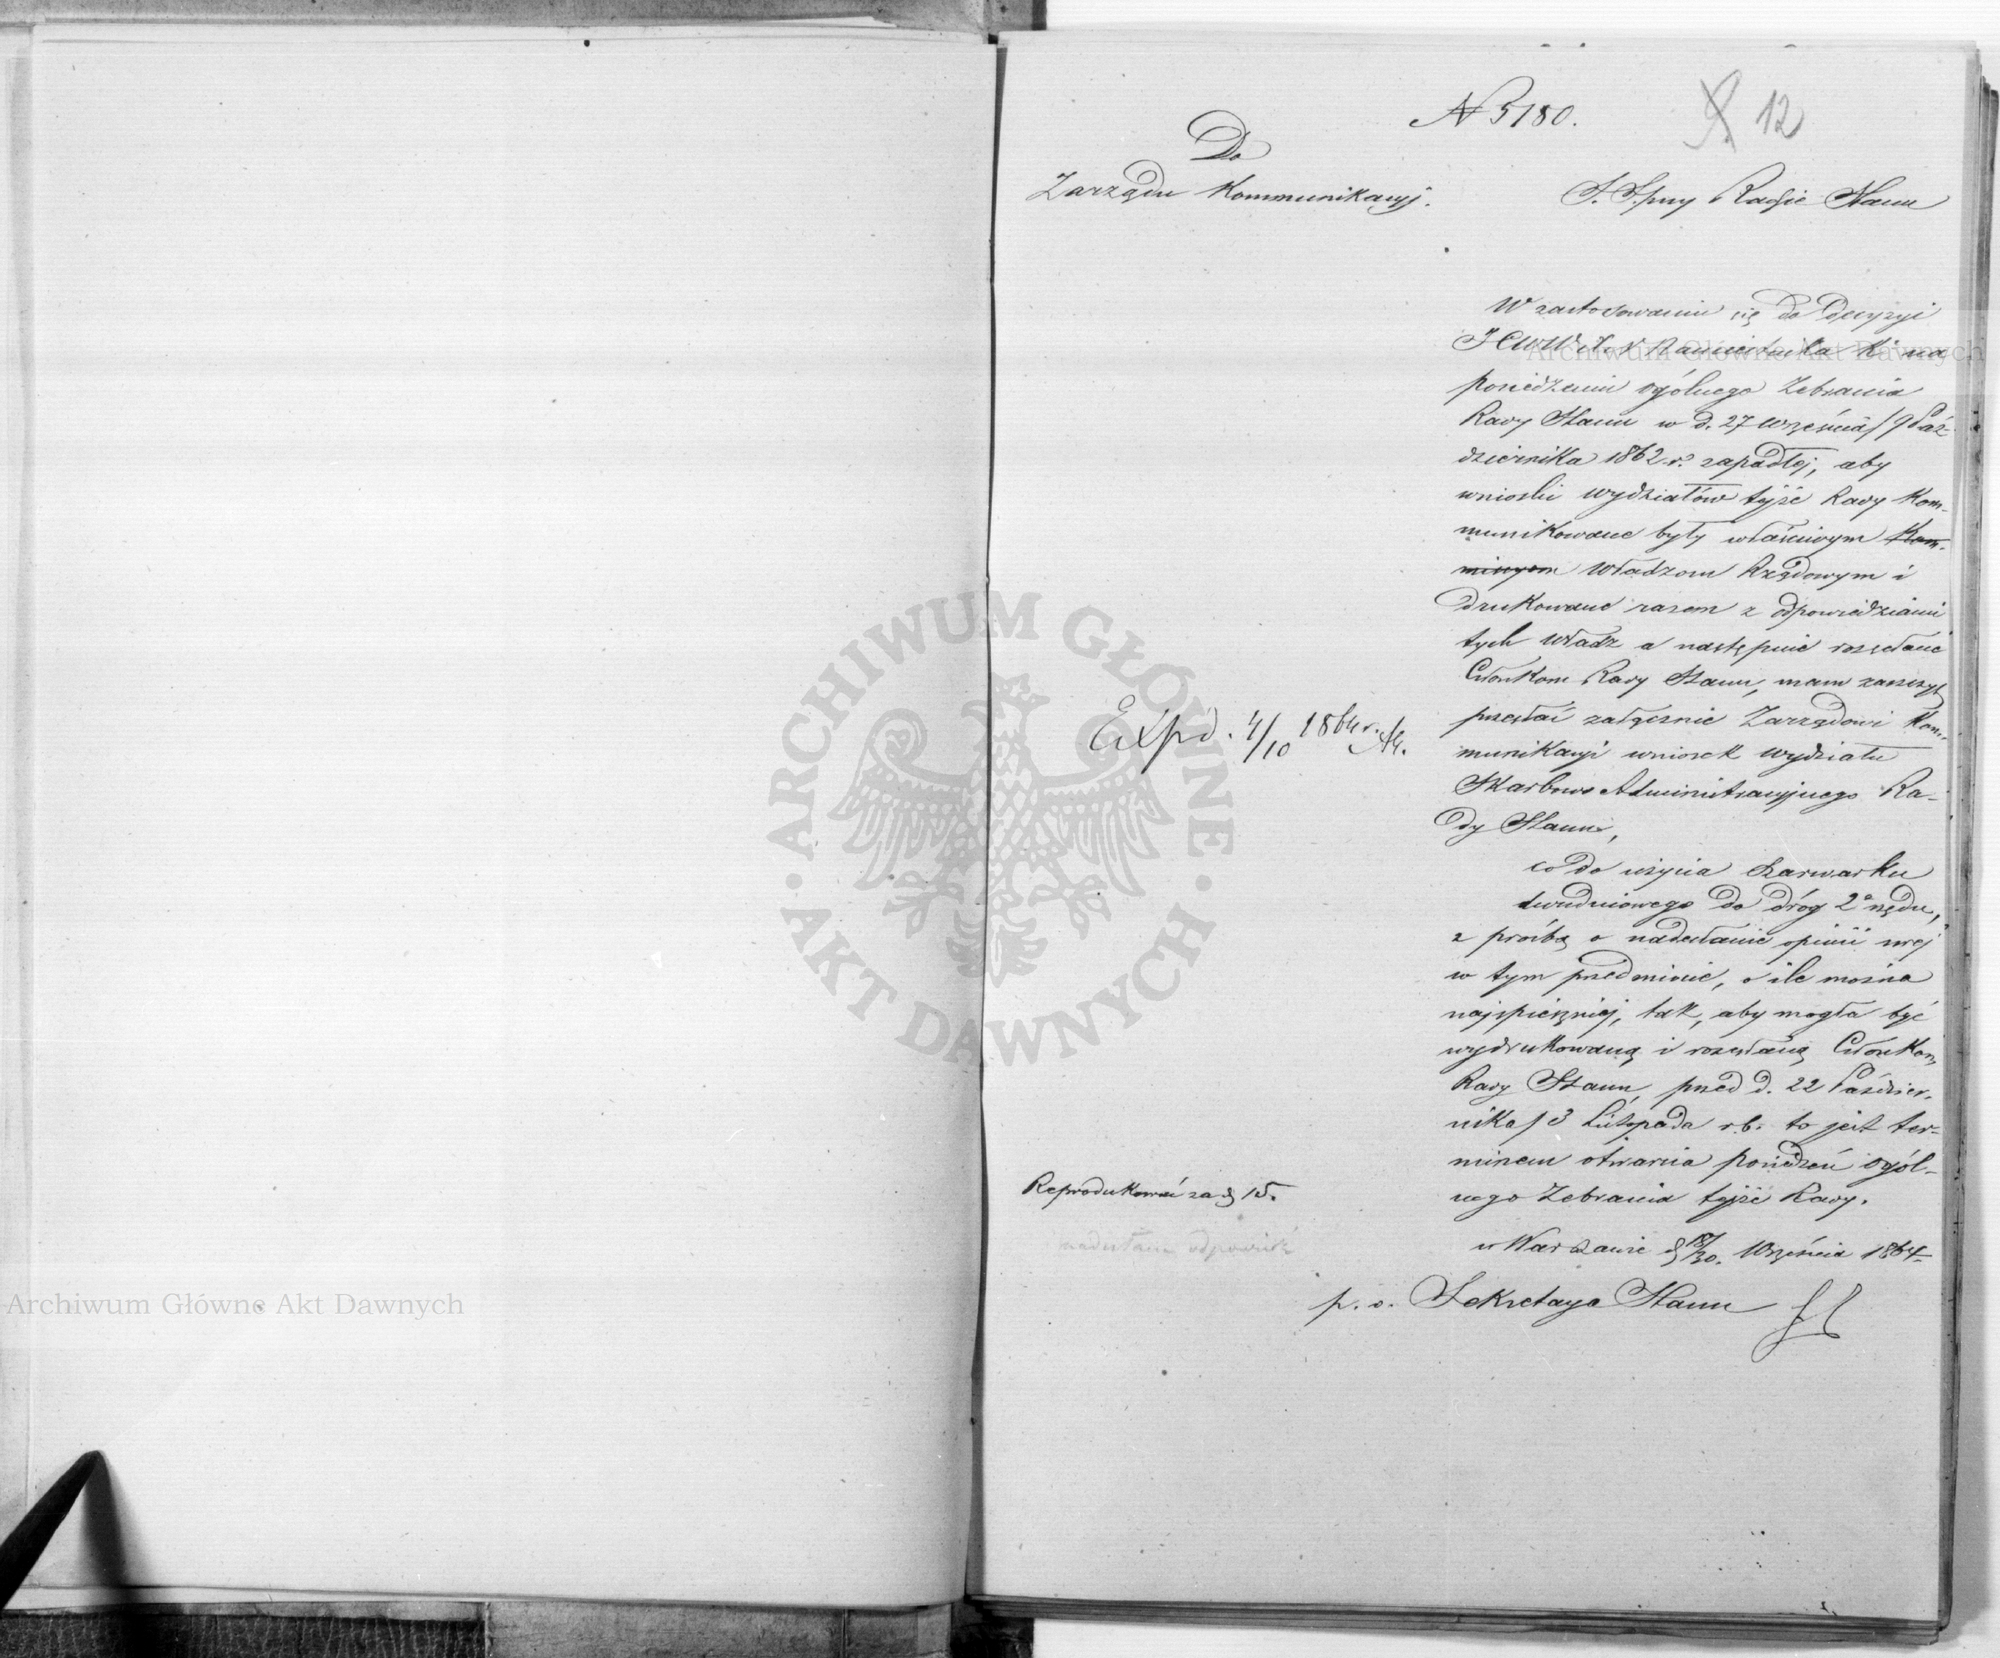 N 5180.
12
Do
Zarządu Kommunikacyj.
S. S. przy Radzie Stanu
W zastosowaniu się do decyzyi
JCWW. X. Namiestnika K. na
posiedzeniu ogólnego Zebrania
Rady Stanu w d. 27 Września / 9 Paź-
dziernika 1862 r. zapadłej, aby
wnioski wydziałów tejże Rady Kom-
munikowane były właściwym Kom-
missyom Władzom Rządowym i
drukowane razem z odpowiedziami
tych Władz a następnie rozesłane
Członkom Rady Stanu, mam zaszczyt
przesłać załącznie Zarządowi Kom-
munikacyi wniosek wydziału
Skarbowo Administracyjnego Ra-
dy Stanu,
co do użycia szarwarku
dwudniowego do dróg 2o rzędu,
z prośbą o nadesłanie opinii swej
w tym przedmiocie, o ile można
najspieszniej, tak, aby mogła być
wydrukowaną i rozesłaną Członkom
Rady Stanu, przed d. 22 Paździer-
nika / 3 Listopada r.b. to jest ter-
minem otwarcia posiedzeń ogól-
nego Zebrania tejże Rady.
w Warszawie d. 18/30. Września 1864
p. o. Sekretarza Stanu
Expd. 4/10 1864 r.
Reprodukować za d. 15.
nadesłanie odpowiedź
Archiwum Główne Akt Dawnych
Archiwum Główne Akt Dawnych
ARCHIWUM GŁÓWNE · AKT DAWNYCH ·